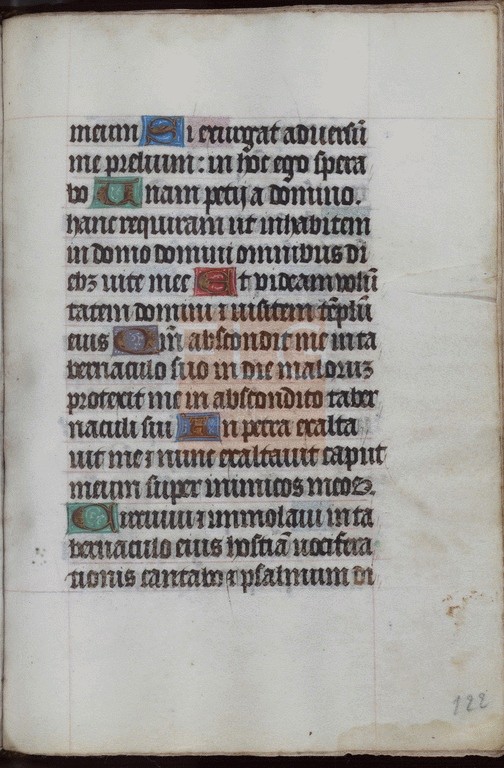 meum Si exurgat aduersū
me prelium: in hoc ego spera
bo Unam petij a domino.
hanc requiram ut inhabitem
in domo domini omnibus di
ebꝫ uite mee Et videam volū
tatem domini ⁊ uisitem tēplū
eius Qm̄ abscondit me in ta
bernaculo suo in die maloruꝫ
protexit me in abscondito taber
naculi sui In petra exalta
uit me ⁊ nunc exaltauit caput
meum super inimicos meoꝝ.
Circuiui ⁊ immolaui in ta
bernaculo eius hostiā uocifera
tionis cantabo ⁊ psalmum di
122